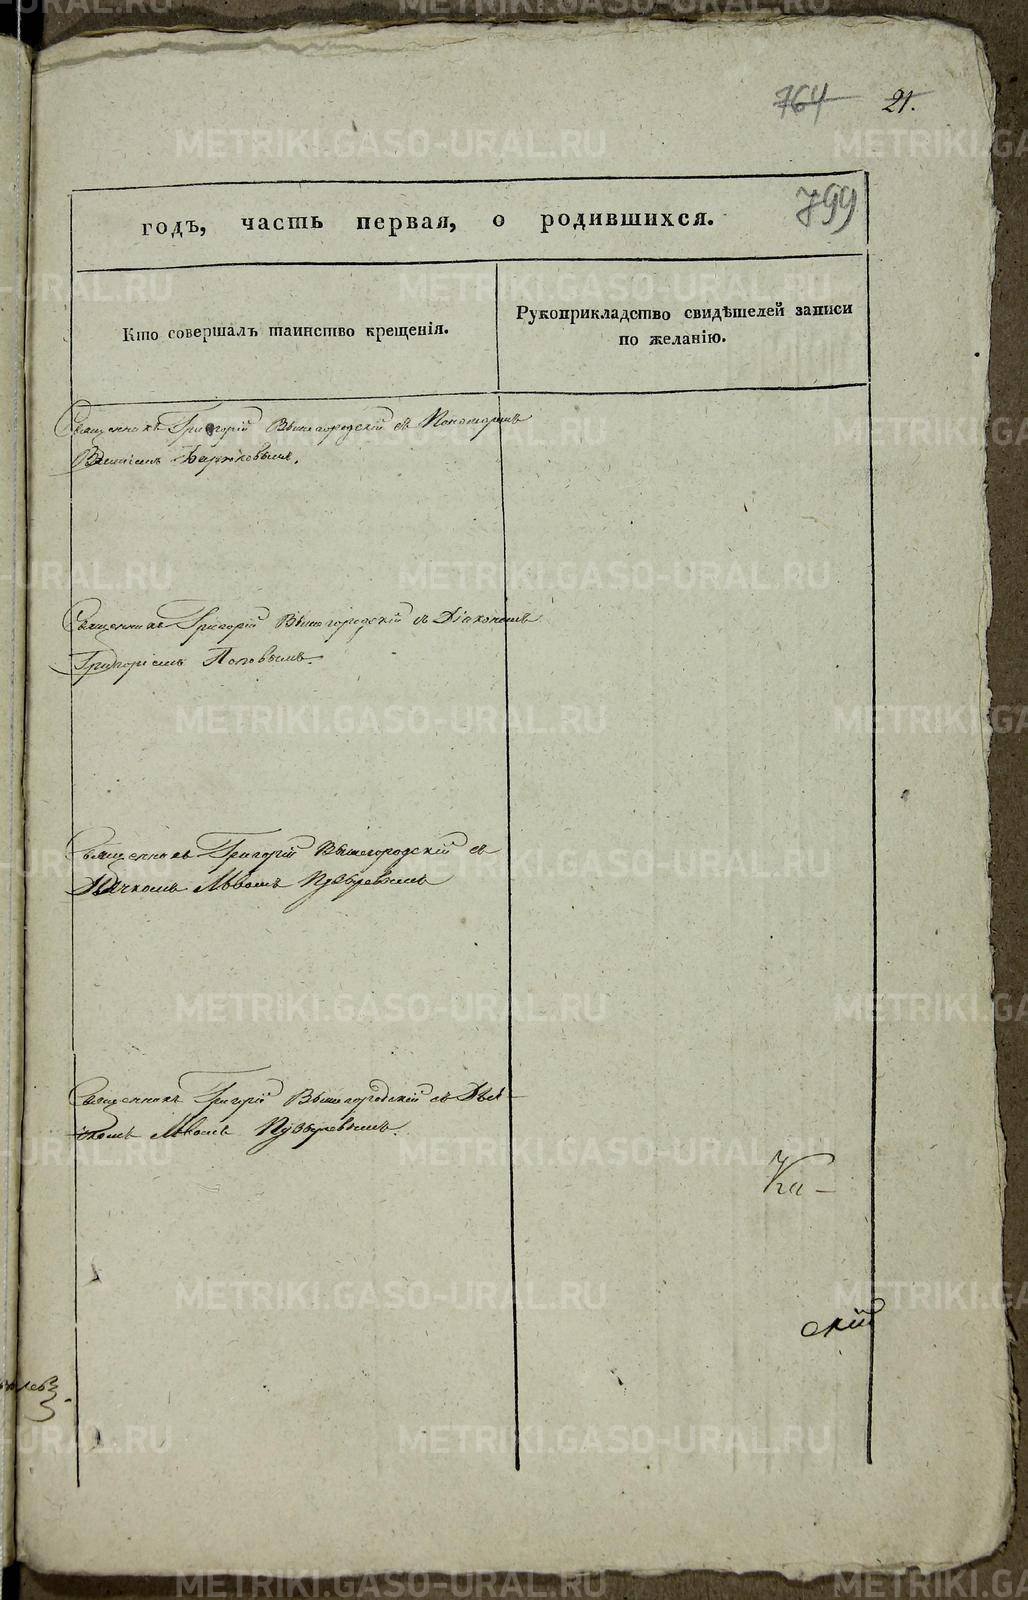 764 21.
799
годъ, часть первая, о родившихся.
Кто совершалъ таинство крещенія.
Рукоприкладство свидѣтелей записи
по желанію.
Священникъ Григорій Вышегородскій съ Пономаремъ
Священникъ Григорій Вышегородскій съ Діакономъ
Григоріемъ Поповымъ.
Священникъ Григорій Вышегородскій съ
Дьячкомъ Львомъ Пузыревымъ
Священникъ Григорій Вышегородскій съ Дья-
чкомъ Львомъ Пузыревымъ.
Ка-
скій
METRIKI.GASO-URAL.RU